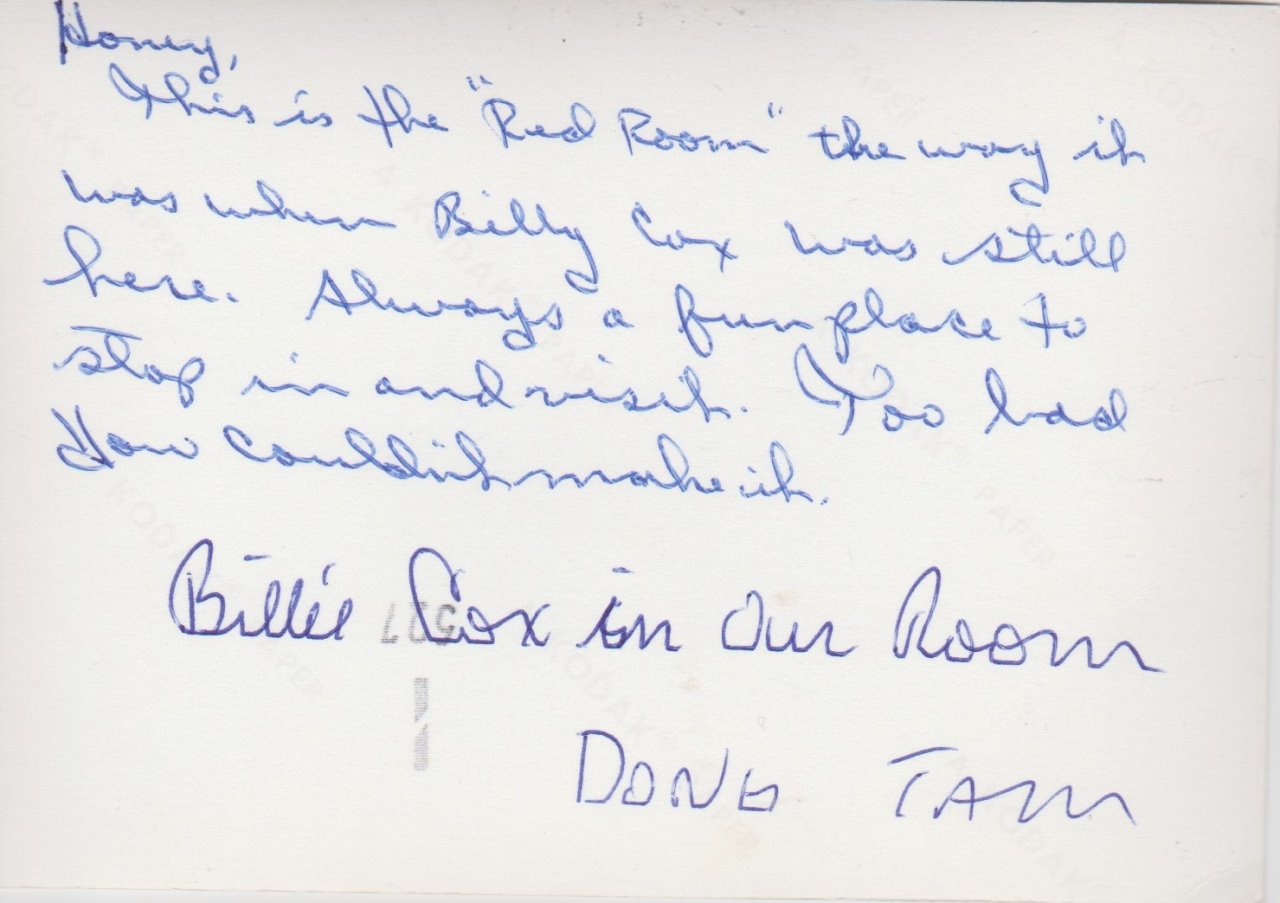 Honey,
This is the "Red Room" the way it
was when Billy Cox was still
here. Always a fun place to
stop in and visit. Too bad
you couldn't make it.
Billie Cox in Our Room
DONG TAM